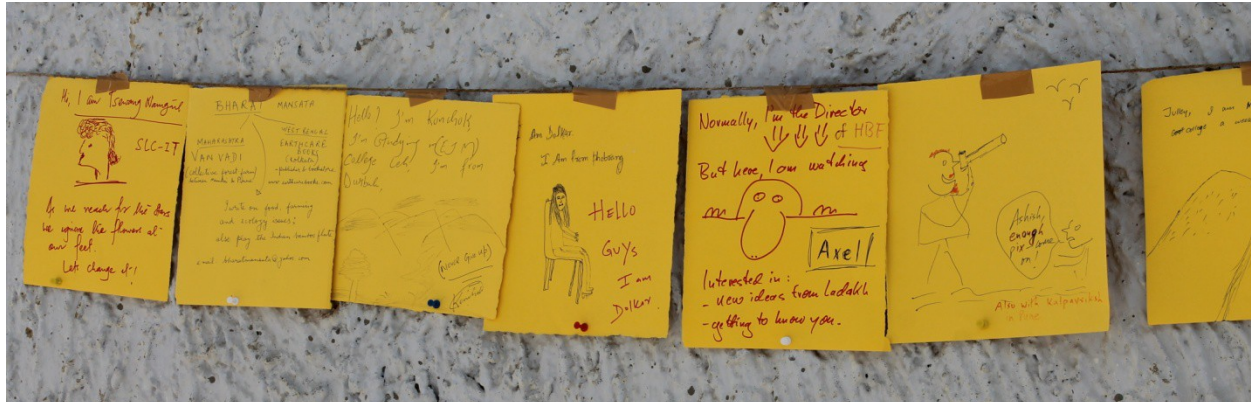 Hi, I am Tsewang Namgail
SLC-IT
As we reach for the stars
we ignore the flowers at
our feet.
Let's change it!
BHARAT MANSATA
MAHARASHTRA
VAN VADI
(collective forest farm)
between Mumbai & Pune
WEST BENGAL
EARTHCARE
BOOKS
(Kolkata)
I write on food, farming
and ecology issues;
also play the Indian bamboo flute
Hello! I'm Konchok
I'm Studying in (EJM)
College Leh. I'm from
Am Dolkar
I Am from
HELLO
GUYS
I am
Dolkar.
Normally, I'm the Director
of HBF
But here, I am watching
Axel
Interested in:
- new ideas from Ladakh
- getting to know you.
Ashish,
enough
pix- come
on!
Ashish with Kalpavriksh
in Pune
Julley, I am